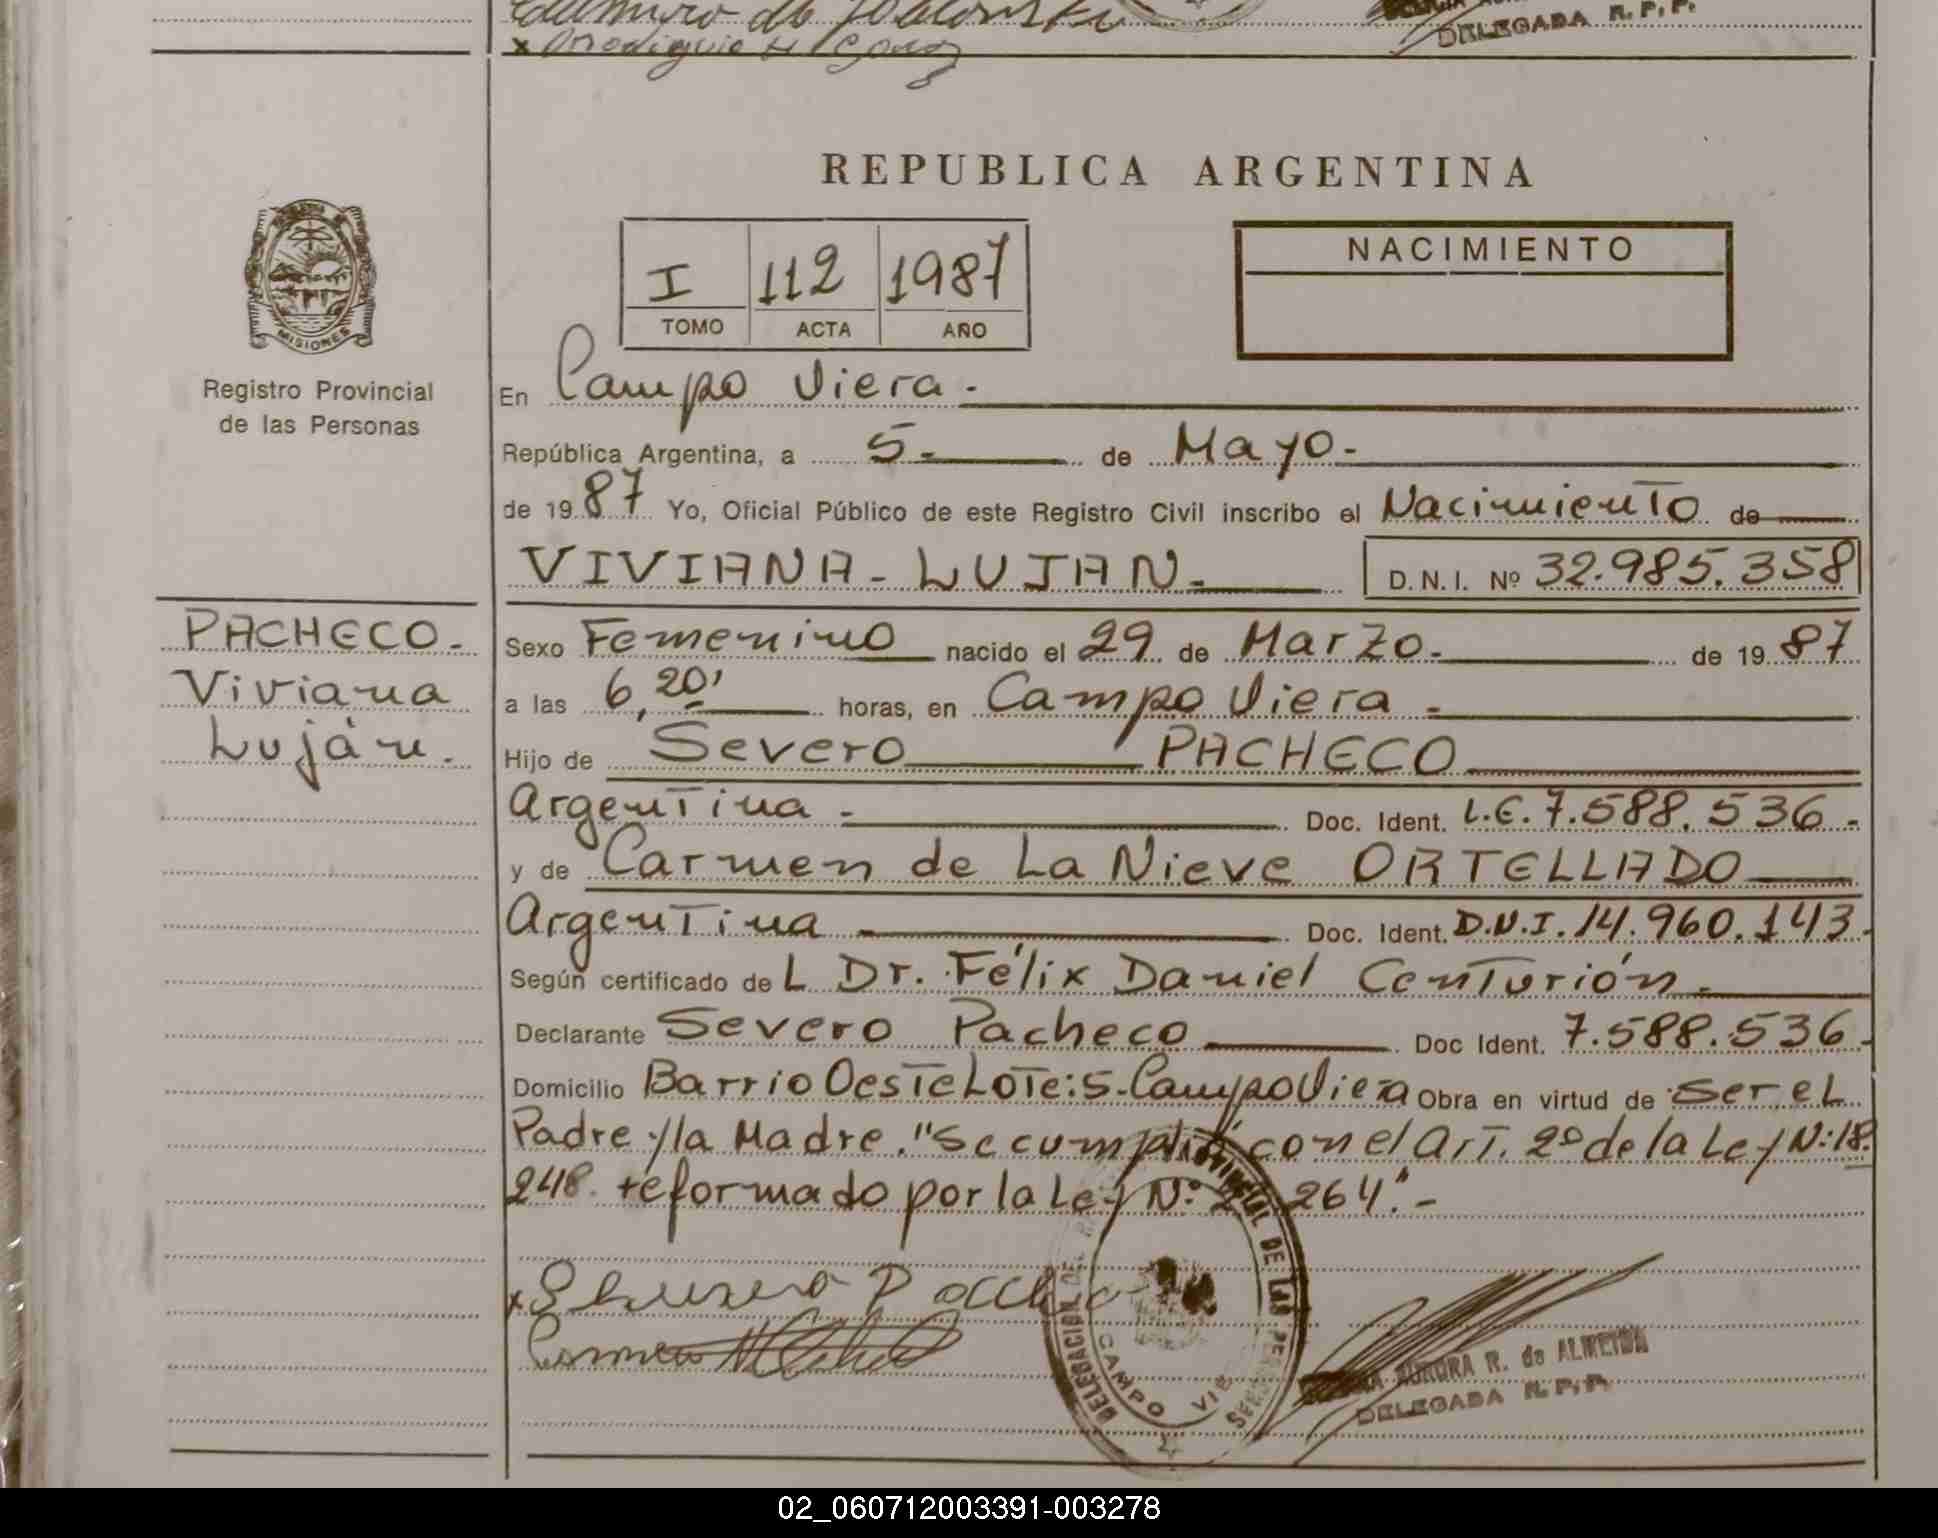 DELEGADA R.P.P.
REPUBLICA ARGENTINA
I 112 1987
TOMO ACTA AÑO
NACIMIENTO
MISIONES
Registro Provincial
de las Personas
En Campo Viera.
República Argentina, a 5- de Mayo.
de 1987 Yo, Oficial Público de este Registro Civil inscribo el Nacimiento de
VIVIANA - LUJAN. D.N.I. Nº 32.985.358
PACHECO.
Viviana
Luján.
Sexo Femenino nacido el 29 de Marzo. de 1987
a las 6,20' horas, en Campo Viera.
Hijo de Severo PACHECO
Argentina - Doc. Ident. L.E. 7.588.536-
y de Carmen de La Nieve ORTELLADO
Argentina - Doc. Ident. D.N.I. 14.960.143.
Según certificado de L Dr. Félix Daniel Centurión.
Declarante Severo Pacheco Doc Ident. 7.588.536-
Domicilio Barrio Oeste Lote: 5. Campo Viera Obra en virtud de ser el
Padre y la Madre. "Se cumplió con el Art. 2º de la Ley N: 18.
248. reformado por la Ley Nº 264".-
DELEGACION DEL PROVINCIAL DE LAS PERSONAS
CAMPO VIE
AURORA R. de ALMEIDA
DELEGADA R.P.P.
02_060712003391-003278